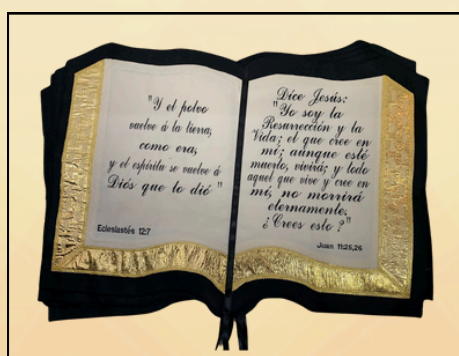 "Y el polvo
vuelve á la tierra,
como era,
y el espíritu se vuelve á
Diós que lo dió"
Eclesiastés 12:7
Dice Jesús:
"Yo soy la
Resurrección y la
Vida; el que cree en
mí; aunque esté
muerto, vivirá; y todo
aquel que vive y cree en
mí, no morirá
eternamente.
¿Crees esto?"
Juan 11:25,26